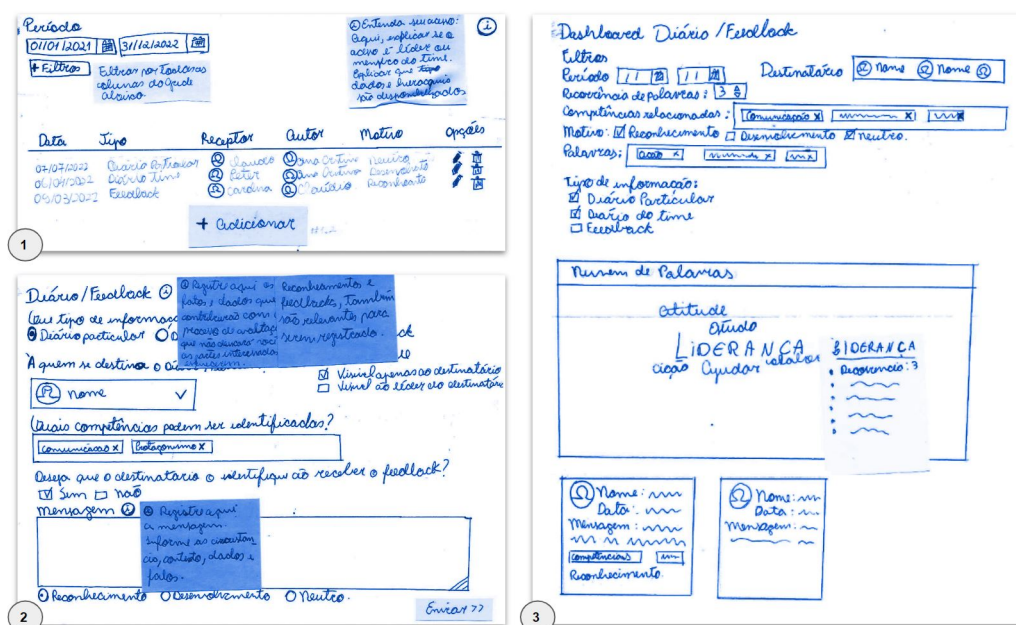 Período
01/01/2021 31/12/2022
+ Filtros
Filtrar por todas as
colunas do grid
abaixo
Entenda seu acesso:
Aqui, explicar se o
acesso é líder ou
membro do time.
Explicar que tipo
dados e hierarquia
são disponibilizados
i
Data Tipo Receptor Autor Motivo Opções
07/07/2022 Diário Particular Claudio Ana Cristina Neutro
06/04/2022 Diário Time Peter Ana Cristina
09/03/2022 Feedback Carolina Claudio
+ Adicionar
1
Diário/Feedback i
i Registre aqui os
fatos e dados que
contribuirão com o
processo de avaliação
que não
as partes interessadas
Reconhecimentos e
feedbacks, também
são relevantes para
serem registrado.
Que tipo de informac
Diário particular O D ck
A quem se destina o
Visível apenas ao destinatário
Visível ao líder do destinatário
Nome
Quais competências podem ser identificadas?
Comunicação x Protagonismo x
Deseja que o destinatário o identifique ao receber o feedback?
Sim Não
Mensagem i
i Registre aqui
a mensagem.
Informe as circunstân
cia, contexto, dados e
fatos.
Reconhecimento Desenvolvimento Neutro.
Enviar >>
2
Dashboard Diário/Feedback
Filtros
Período / / / / Destinatário Nome Nome
Recorrência de Palavras: 3
Competências relacionadas: Comunicação x x x
Motivo: Reconhecimento Desenvolvimento Neutro.
Palavras: Ação x x x
Tipo de informação:
Diário Particular
Diário do time
Feedback
Nuvem de Palavras
atitude
Estudo
LiDERANÇA
ação Ajudar
LIDERANÇA
Recorrência: 3
Nome:
Data:
Mensagem:
competências
Reconhecimento
Nome:
Data:
Mensagem:
3